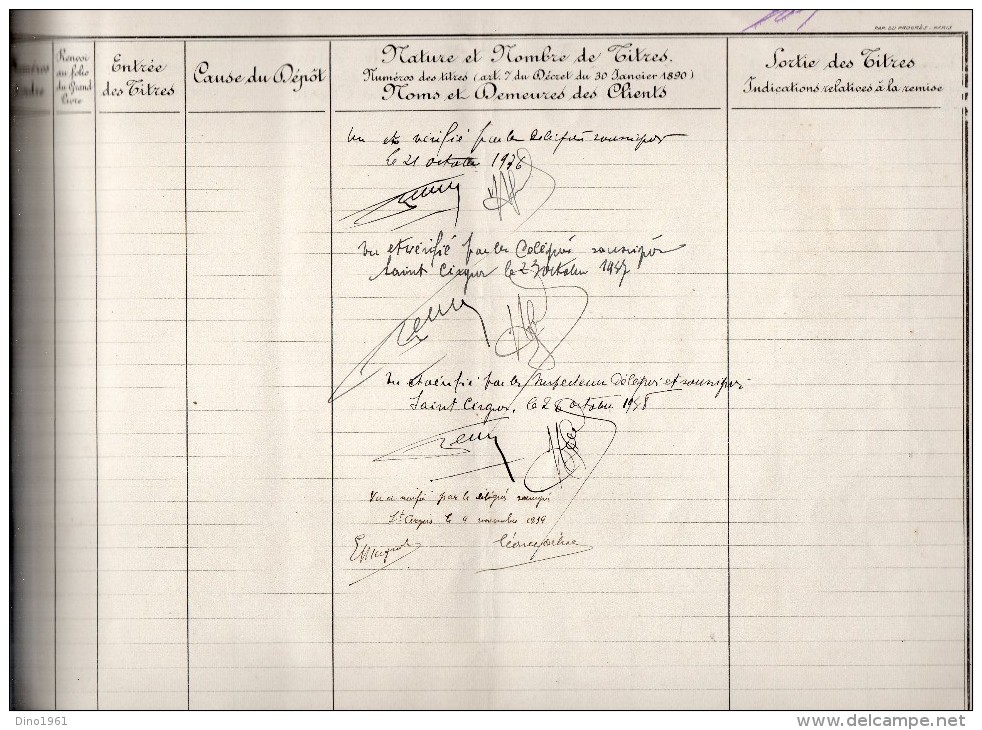 PAP. DU PROGRÈS - PARIS
Numéros
Renvoi
au folio
du Grand
Livre
Entrée
des Titres
Cause du Dépôt
Nature et Nombre de Titres.
Numéros des titres (art. 7 du Décret du 30 Janvier 1890)
Noms et Demeures des Clients
Sortie des Titres
Indications relatives à la remise
Vu et vérifié par les Délégués soussignés
le 21 octobre 1936
Vu et vérifié par les Délégués soussignés
Saint Cirgues le 23 octobre 1937
Vu et vérifié par les Inspecteurs Délégués et soussignés
Saint Cirgues, le 28 octobre 1938
Vu et vérifié par les délégués soussignés
St Cirgues le 9 novembre 1939
Dino1961
delcampe.net